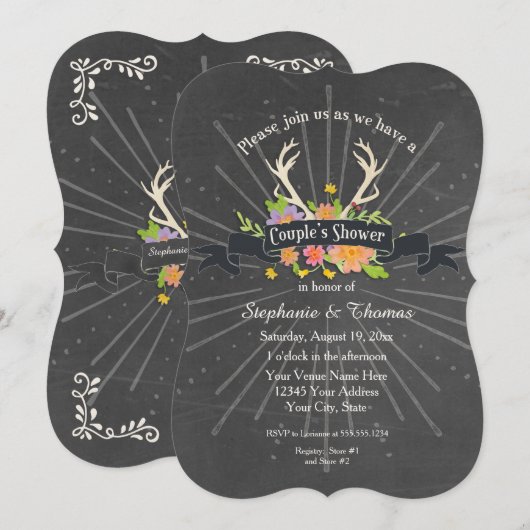 Please join us as we have a
Couple's Shower
in honor of
Stephanie & Thomas
Saturday, August 19, 20xx
1 o'clock in the afternoon
Your Venue Name Here
12345 Your Address
Your City, State
RSVP to Lorianne at 555.555.1234
Registry: Store #1
and Store #2
Stephanie